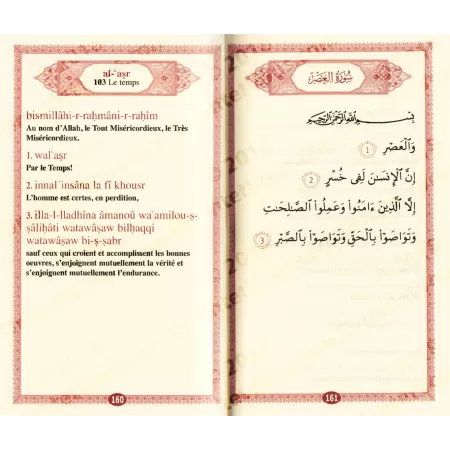 al-ʿaṣr
103 Le temps
bismillâhi-r-raḥmâni-r-raḥîm
Au nom d'Allah, le Tout Miséricordieux, le Très
Miséricordieux.
1. walʿaṣr
Par le Temps!
2. innal'insâna la fî khousr
L'homme est certes, en perdition,
3. illa-l-lladhîna âmanoû waʿamilou-ṣ-
ṣâliḥâti watawâṣaw bilḥaqqi
watawâṣaw bi-ṣ-ṣabr
sauf ceux qui croient et accomplissent les bonnes
oeuvres, s'enjoignent mutuellement la vérité et
s'enjoignent mutuellement l'endurance.
160
سُورَةُ العَصْرِ
بِسْمِ اللَّهِ الرَّحْمَٰنِ الرَّحِيمِ
وَالْعَصْرِ ١
إِنَّ الْإِنسَٰنَ لَفِى خُسْرٍ ٢
إِلَّا الَّذِينَ ءَامَنُوا۟ وَعَمِلُوا۟ الصَّٰلِحَٰتِ
وَتَوَاصَوْا۟ بِالْحَقِّ وَتَوَاصَوْا۟ بِالصَّبْرِ ٣
161